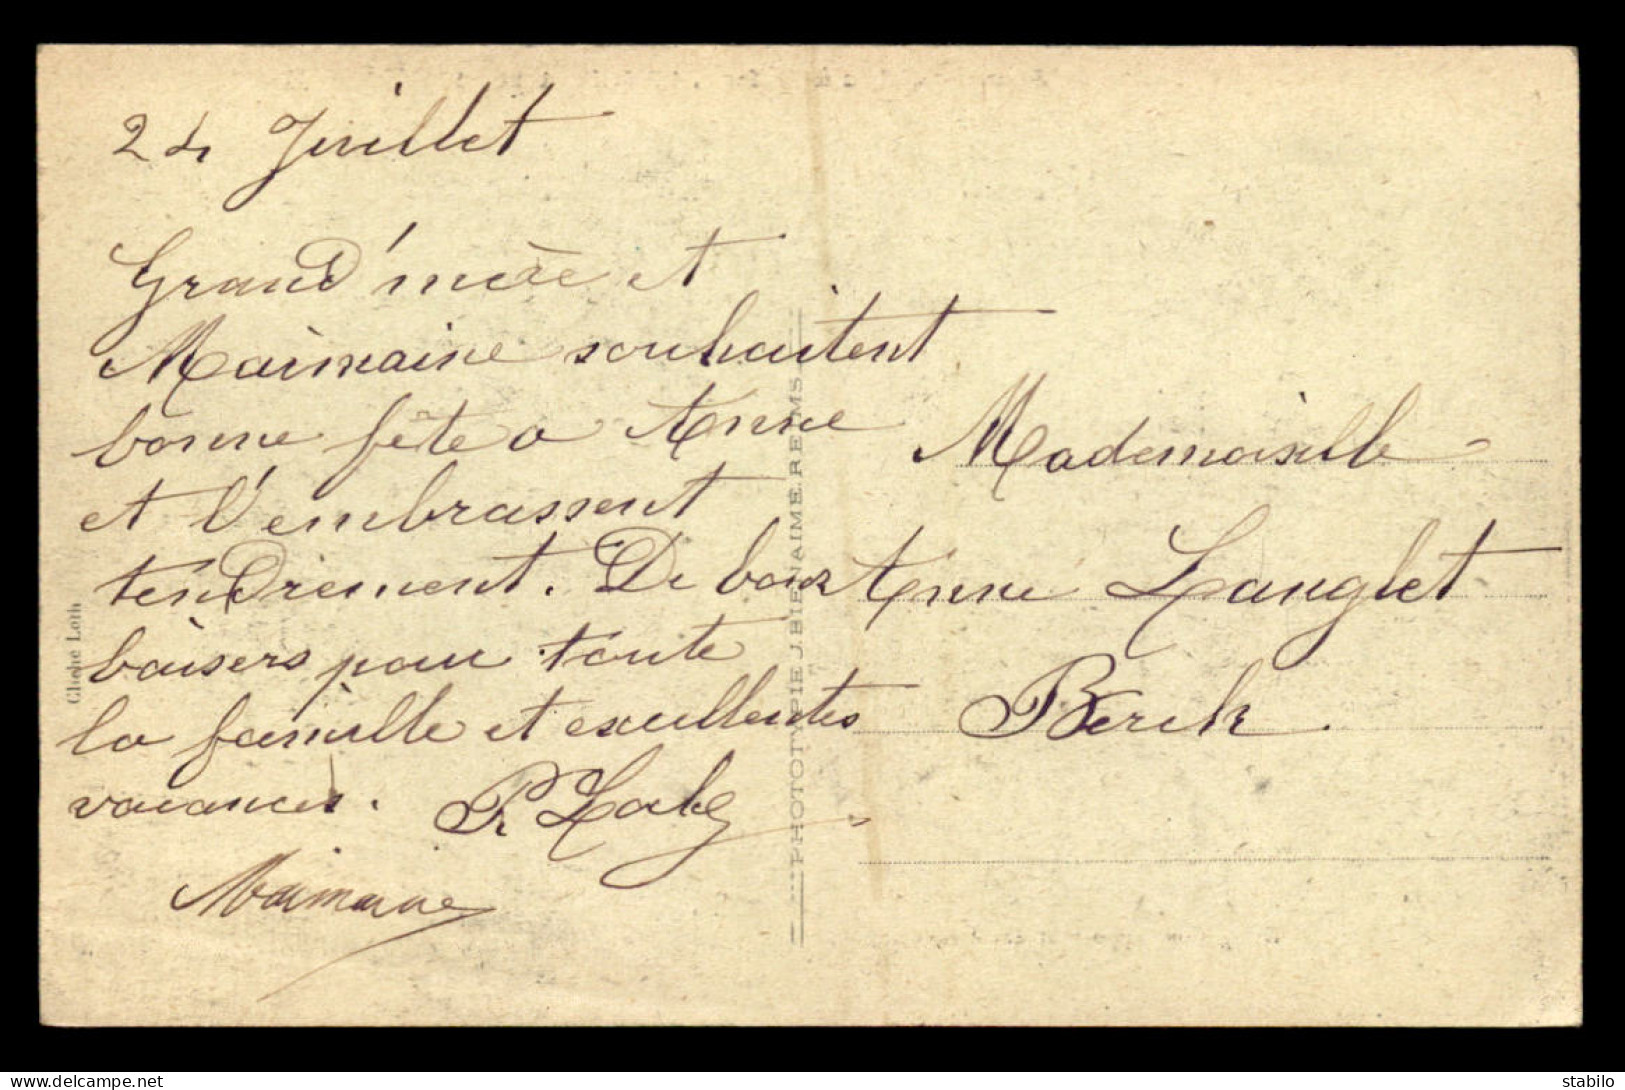 24 Juillet
Grand'mère et
Maimaine souhaitent
bonne fête a Anne
et l'embrassent
tendrement. De bons
baisers pour toute
la famille et excellentes
vacances.
Maimaine
Mademoiselle
Anne Langlet
Berck.
Cliché Loth
PHOTOTYPIE J. BIENAIMÉ. REIMS
delcampe.net
stabilo